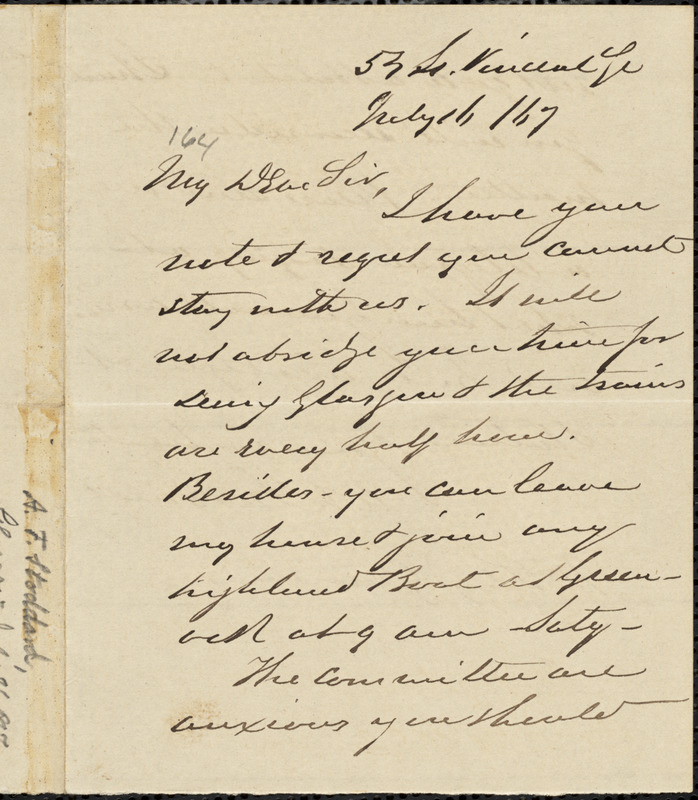 53 St. Vincent St
July 16 / 67
164
My Dear Sir,
I have your
note & regret you cannot
stay with us. It will
not abridge your time for
seeing Glasgow & the trains
are every half hour.
Besides - you can leave
my house & join any
highland Boat at Green-
ock at 9 am - Saty -
The committee are
anxious you should
A. F. Stoddard,